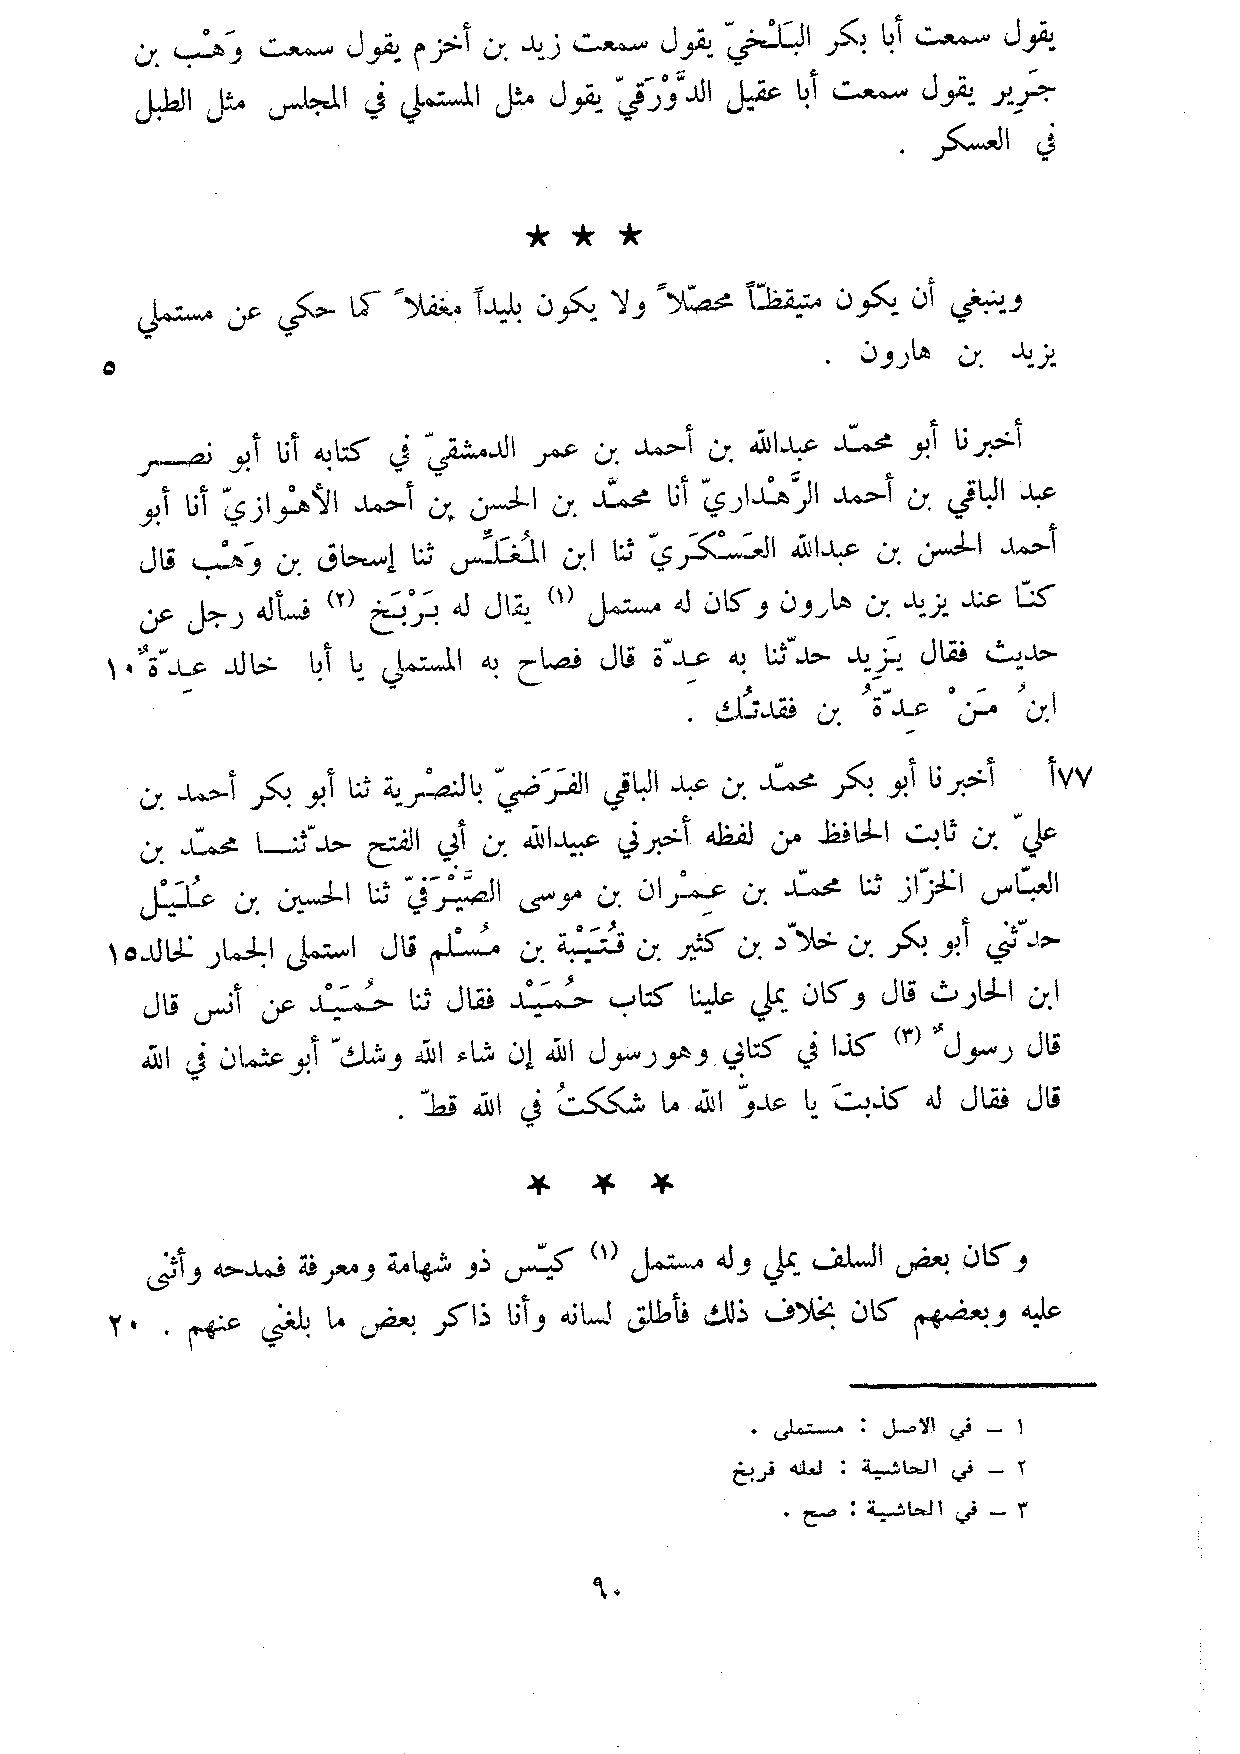 يقول سمعت أبا بكر البَلْخيّ يقول سمعت زيد بن أخزم يقول سمعت وَهْب بن
جَرير يقول سمعت أبا عقيل الدَّوْرَقيّ يقول مثل المستملي في المجلس مثل الطبل
في العسكر .
★ ★ ★
وينبغي أن يكون متيقظاً محصّلاً ولا يكون بليداً مغفلاً كما حكي عن مستملي
يزيد بن هارون . ٥
أخبرنا أبو محمّد عبدالله بن أحمد بن عمر الدمشقيّ في كتابه أنا أبو نصر
عبد الباقي بن أحمد الرَّهْداريّ أنا محمّد بن الحسن بن أحمد الأهْوازيّ أنا أبو
أحمد الحسن بن عبدالله العَسْكَريّ ثنا ابن المُغَلِّس ثنا إسحاق بن وَهْب قال
كنّا عند يزيد بن هارون وكان له مستمل (١) يقال له بَرْبَخ (٢) فسأله رجل عن
حديث فقال يَزِيد حدّثنا به عِدّة قال فصاح به المستملي يا أبا خالد عِدّةٌ ١٠
ابنُ مَنْ عِدّةُ بن فقدتُك .
٧٧أ أخبرنا أبو بكر محمّد بن عبد الباقي الفَرَضيّ بالنصْرية ثنا أبو بكر أحمد بن
عليّ بن ثابت الحافظ من لفظه أخبرني عبيدالله بن أبي الفتح حدّثنا محمّد بن
العبّاس الخزّاز ثنا محمّد بن عِمْران بن موسى الصَّيْرَفيّ ثنا الحسين بن عُلَيْل
حدّثني أبو بكر بن خلاّد بن كثير بن قُتَيْبة بن مُسْلم قال استملى الجمار لخالد ١٥
ابن الحارث قال وكان يملي علينا كتاب حُمَيْد فقال ثنا حُمَيْد عن أنس قال
قال رسولٌ (٣) كذا في كتابي وهو رسول الله إن شاء الله وشكّ أبو عثمان في الله
قال فقال له كذبتَ يا عدوّ الله ما شككتُ في الله قطّ .
★ ★ ★
وكان بعض السلف يملي وله مستمل (١) كيّس ذو شهامة ومعرفة فمدحه وأثنى
عليه وبعضهم كان بخلاف ذلك فأطلق لسانه وأنا ذاكر بعض ما بلغني عنهم . ٢٠
١ – في الاصل : مستملى .
٢ – في الحاشية : لعله قربخ
٣ – في الحاشية : صح .
٩٠